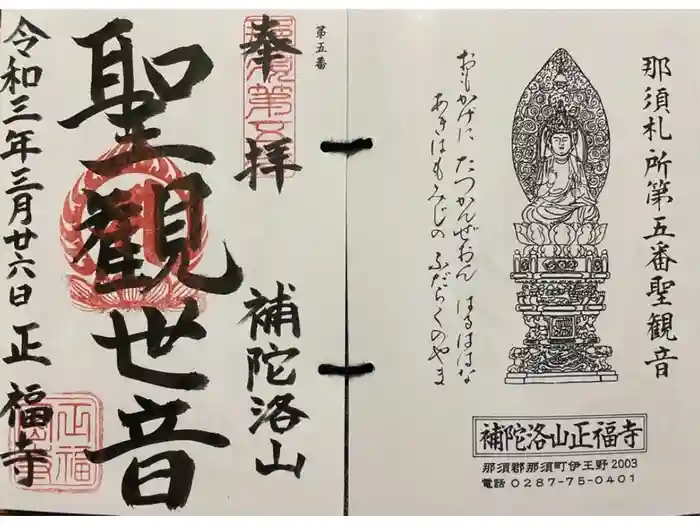 那須札所第五番聖観音
おもかげに たつかんぜおん はるははな
あきはもみじの ふだらくのやま
補陀洛山正福寺
那須郡那須町伊王野2003
電話0287-75-0401
第五番
奉拝
補陀洛山
聖観世音
令和三年三月廿六日 正福寺